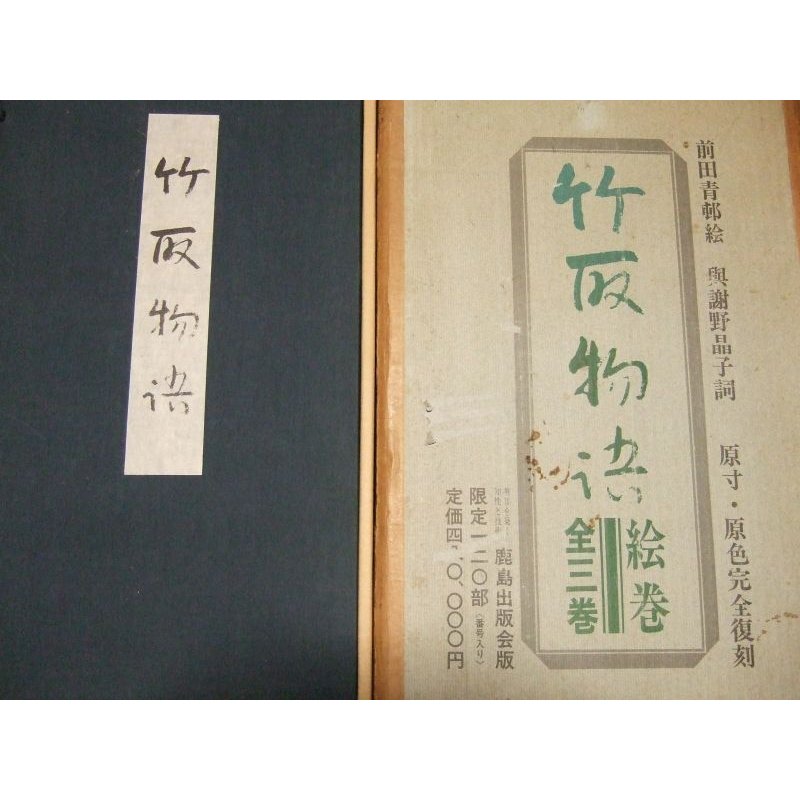 竹取物語
前田青邨絵　與謝野晶子詞　原寸・原色完全復刻
竹取物語
絵巻
全三巻
鹿島出版会版
限定一二〇部〈番号入り〉
定価四〇、〇〇〇円